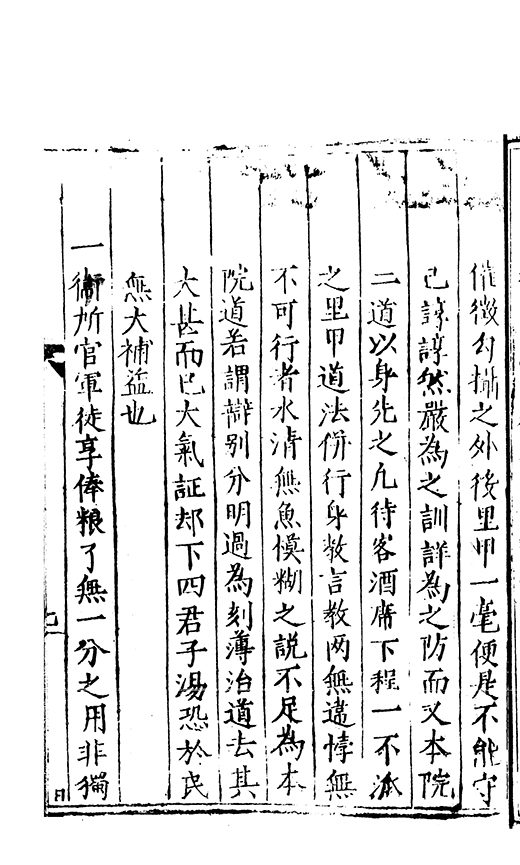 催徵勾攝之外後里甲一毫便是不能守
己諄諄然嚴為之訓詳為之防而又本院
二道以身先之凡待客酒席下程一不派
之里甲道法併行身教言教两無違悖無
不可行者水清無魚模糊之説不足為本
院道若謂辯别分明過為刻薄治道去其
大甚而已大氣証却下四君子湯恐於民
無大補益也
一衛所官軍徒享俸粮了無一分之用非獨